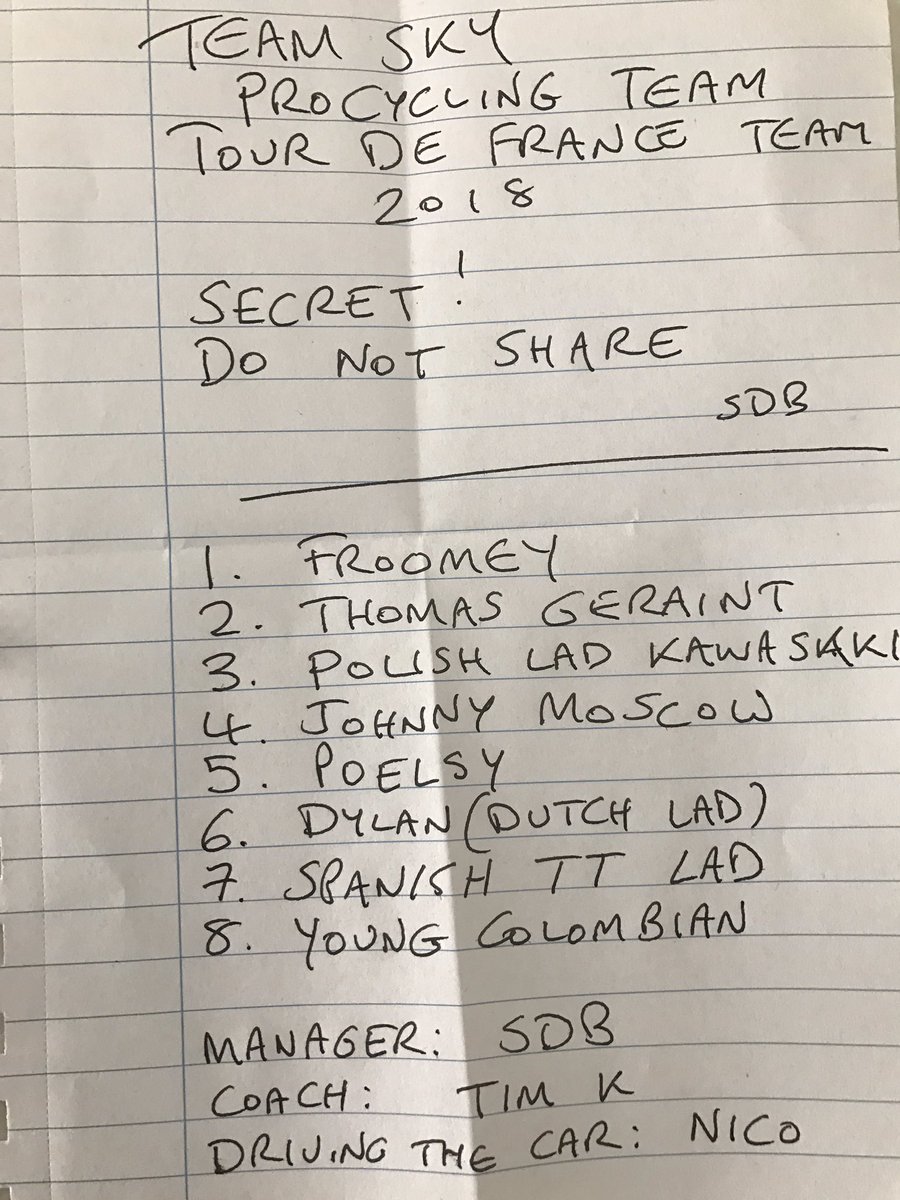 TEAM SKY
PROCYCLING TEAM
TOUR DE FRANCE TEAM
2018
SECRET!
DO NOT SHARE
SDB
1. FROOMEY
2. THOMAS GERAINT
3. POLISH LAD KAWASAKI
4. JOHNNY MOSCOW
5. POELSY
6. DYLAN (DUTCH LAD)
7. SPANISH TT LAD
8. YOUNG COLOMBIAN
MANAGER: SDB
COACH: TIM K
DRIVING THE CAR: NICO